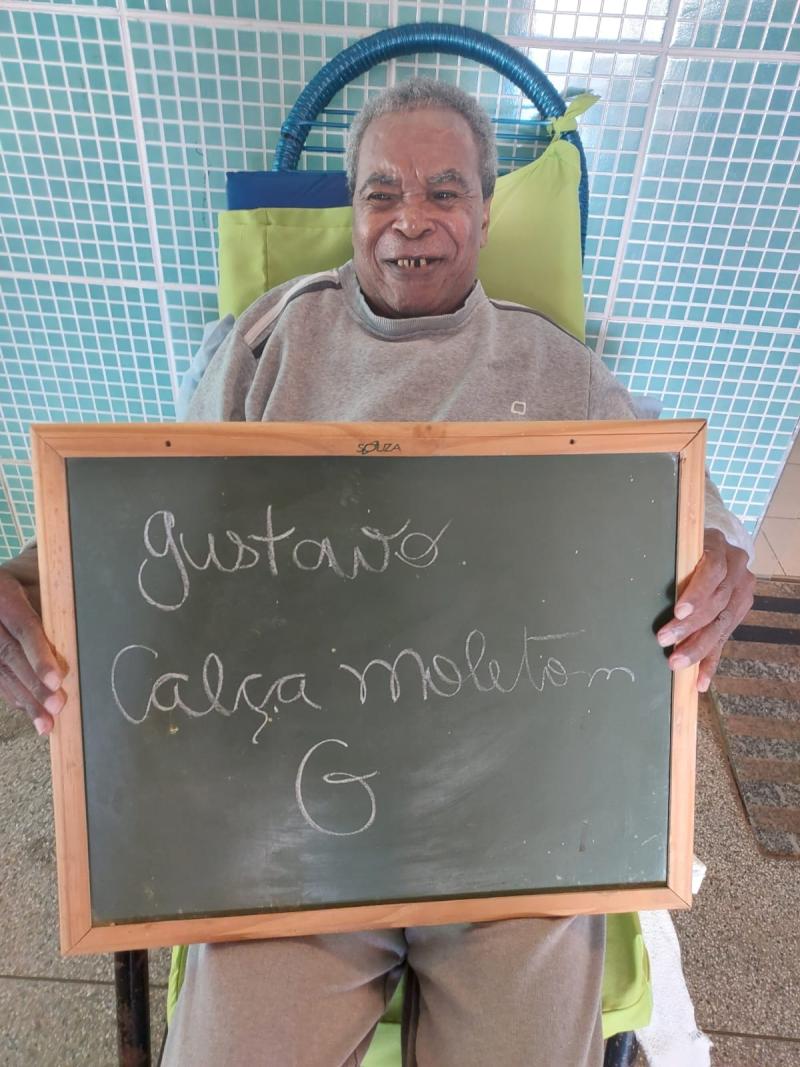 SOUZA
gustavo
Calça moletom
G